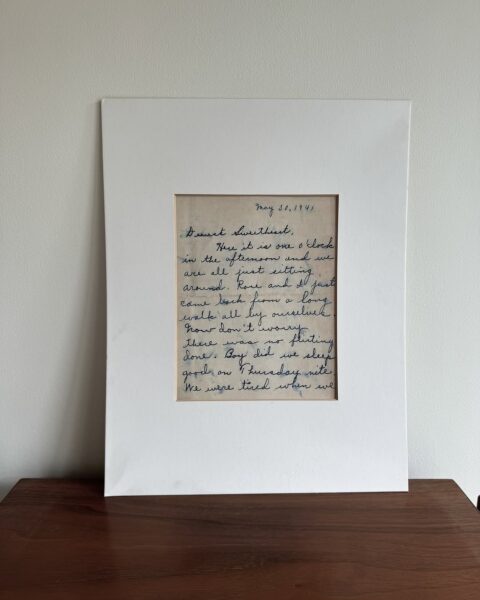 May 30, 1941
Dearest Sweethist,
Here it is one o'clock
in the afternoon and we
are all just sitting
around. Rose and I just
came back from a long
walk all by ourselves.
Now don't worry
there was no flirting
done. Boy did we sleep
good on Thursday nite.
We were tired when we